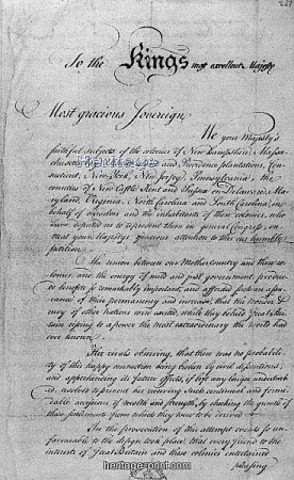 To the Kings most excellent Majesty
Most gracious Sovereign
We your Majesty's
faithful subjects of the colonies of New Hampshire, Massa-
chusetts and Providence plantations, Con-
necticut, New-York, New Jersey, Pennsylvania, the
counties of New Castle Kent and Sussex on Delaware, Ma-
ryland, Virginia, North Carolina and South Carolina, in
behalf of ourselves and the inhabitants of these colonies, who
have deputed us to represent them in general Congress, en-
treat your Majesty's gracious attention to this our humble
petition.
The union between our Mother Country and these co-
lonies, and the energy of mild and just government produc-
ed benefits so remarkably important, and afforded such an assu-
rance of their permanency and increase, that the wonder &
envy of other nations were excited, while they beheld Great Bri-
tain rising to a power the most extraordinary the world had
ever known.
Her rivals observing, that there was no probabili-
ty of this happy connection being broken by civil dissentions,
and apprehending its future effects, if left any longer undisturb-
ed, resolved to prevent her receiving such continual and formi-
dable accessions of wealth and strength, by checking the growth of
these settlements from which they were to be derived.
In the prosecution of this attempt events so un-
favourable to the design took place, that every friend to the
interests of Great Britain and these colonies entertained
pleasing
heritage-print.com